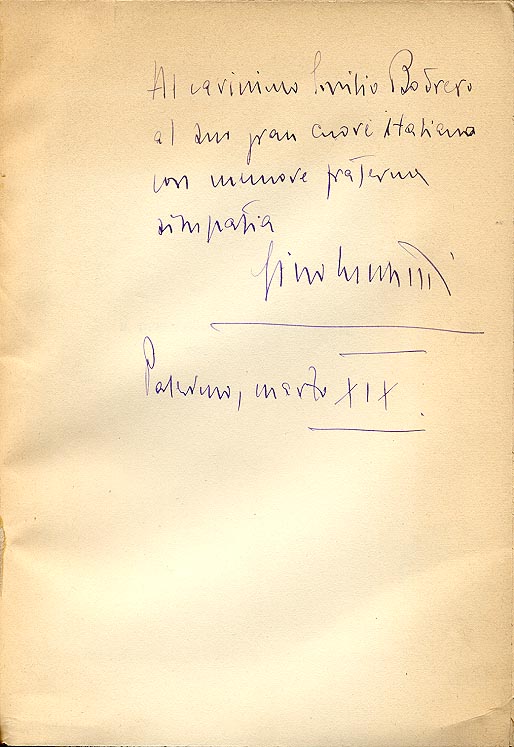 Al carissimo Emilio Bodrero
al suo gran cuore italiano
con memore fraterna
simpatia
Gino
Palermo, marzo XIX